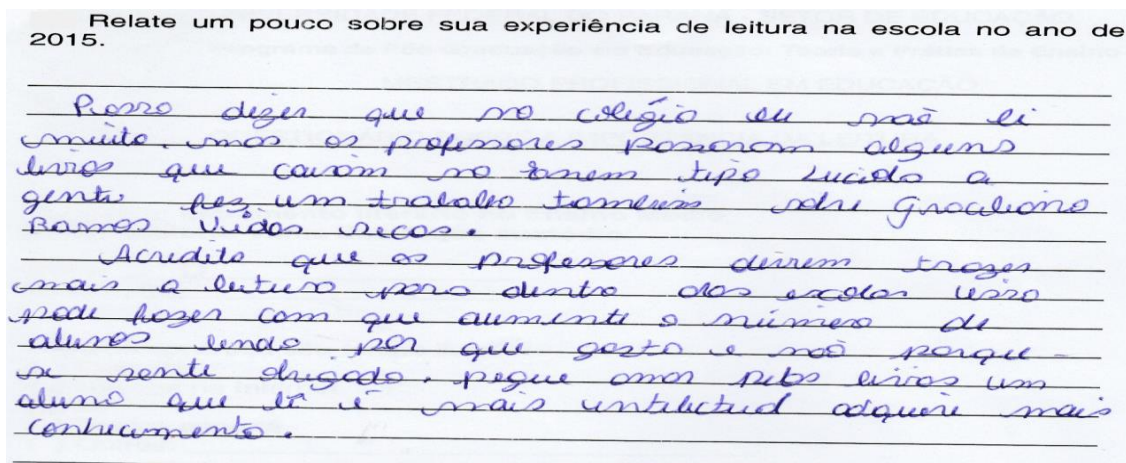 Relate um pouco sobre sua experiência de leitura na escola no ano de
2015.
Posso dizer que no colégio eu não li
muito. mas os professores passaram alguns
livros que caiam no tipo Luciola a
gente fez um trabalho também sobre Graciliano
Ramos Vidas secas.
Acredito que os professores devem trazer
mais a leitura para dentro das escolas isso
pode fazer com que aumente o número de
alunos lendo por que gosta e não porque
se sente obrigado. pegue amor pelos livros um
aluno que lê é mais intelectual adquire mais
conhecimento.